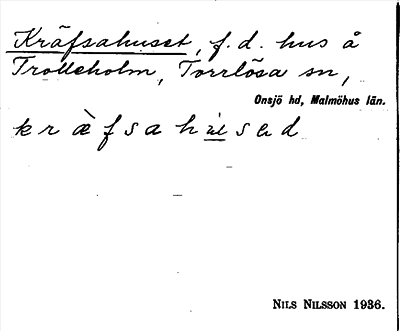 Kräfsahuset, f. d. hus å
Trolleholm, Torrlösa sn,
Onsjö hd, Malmöhus län.
NILS NILSSON 1936.